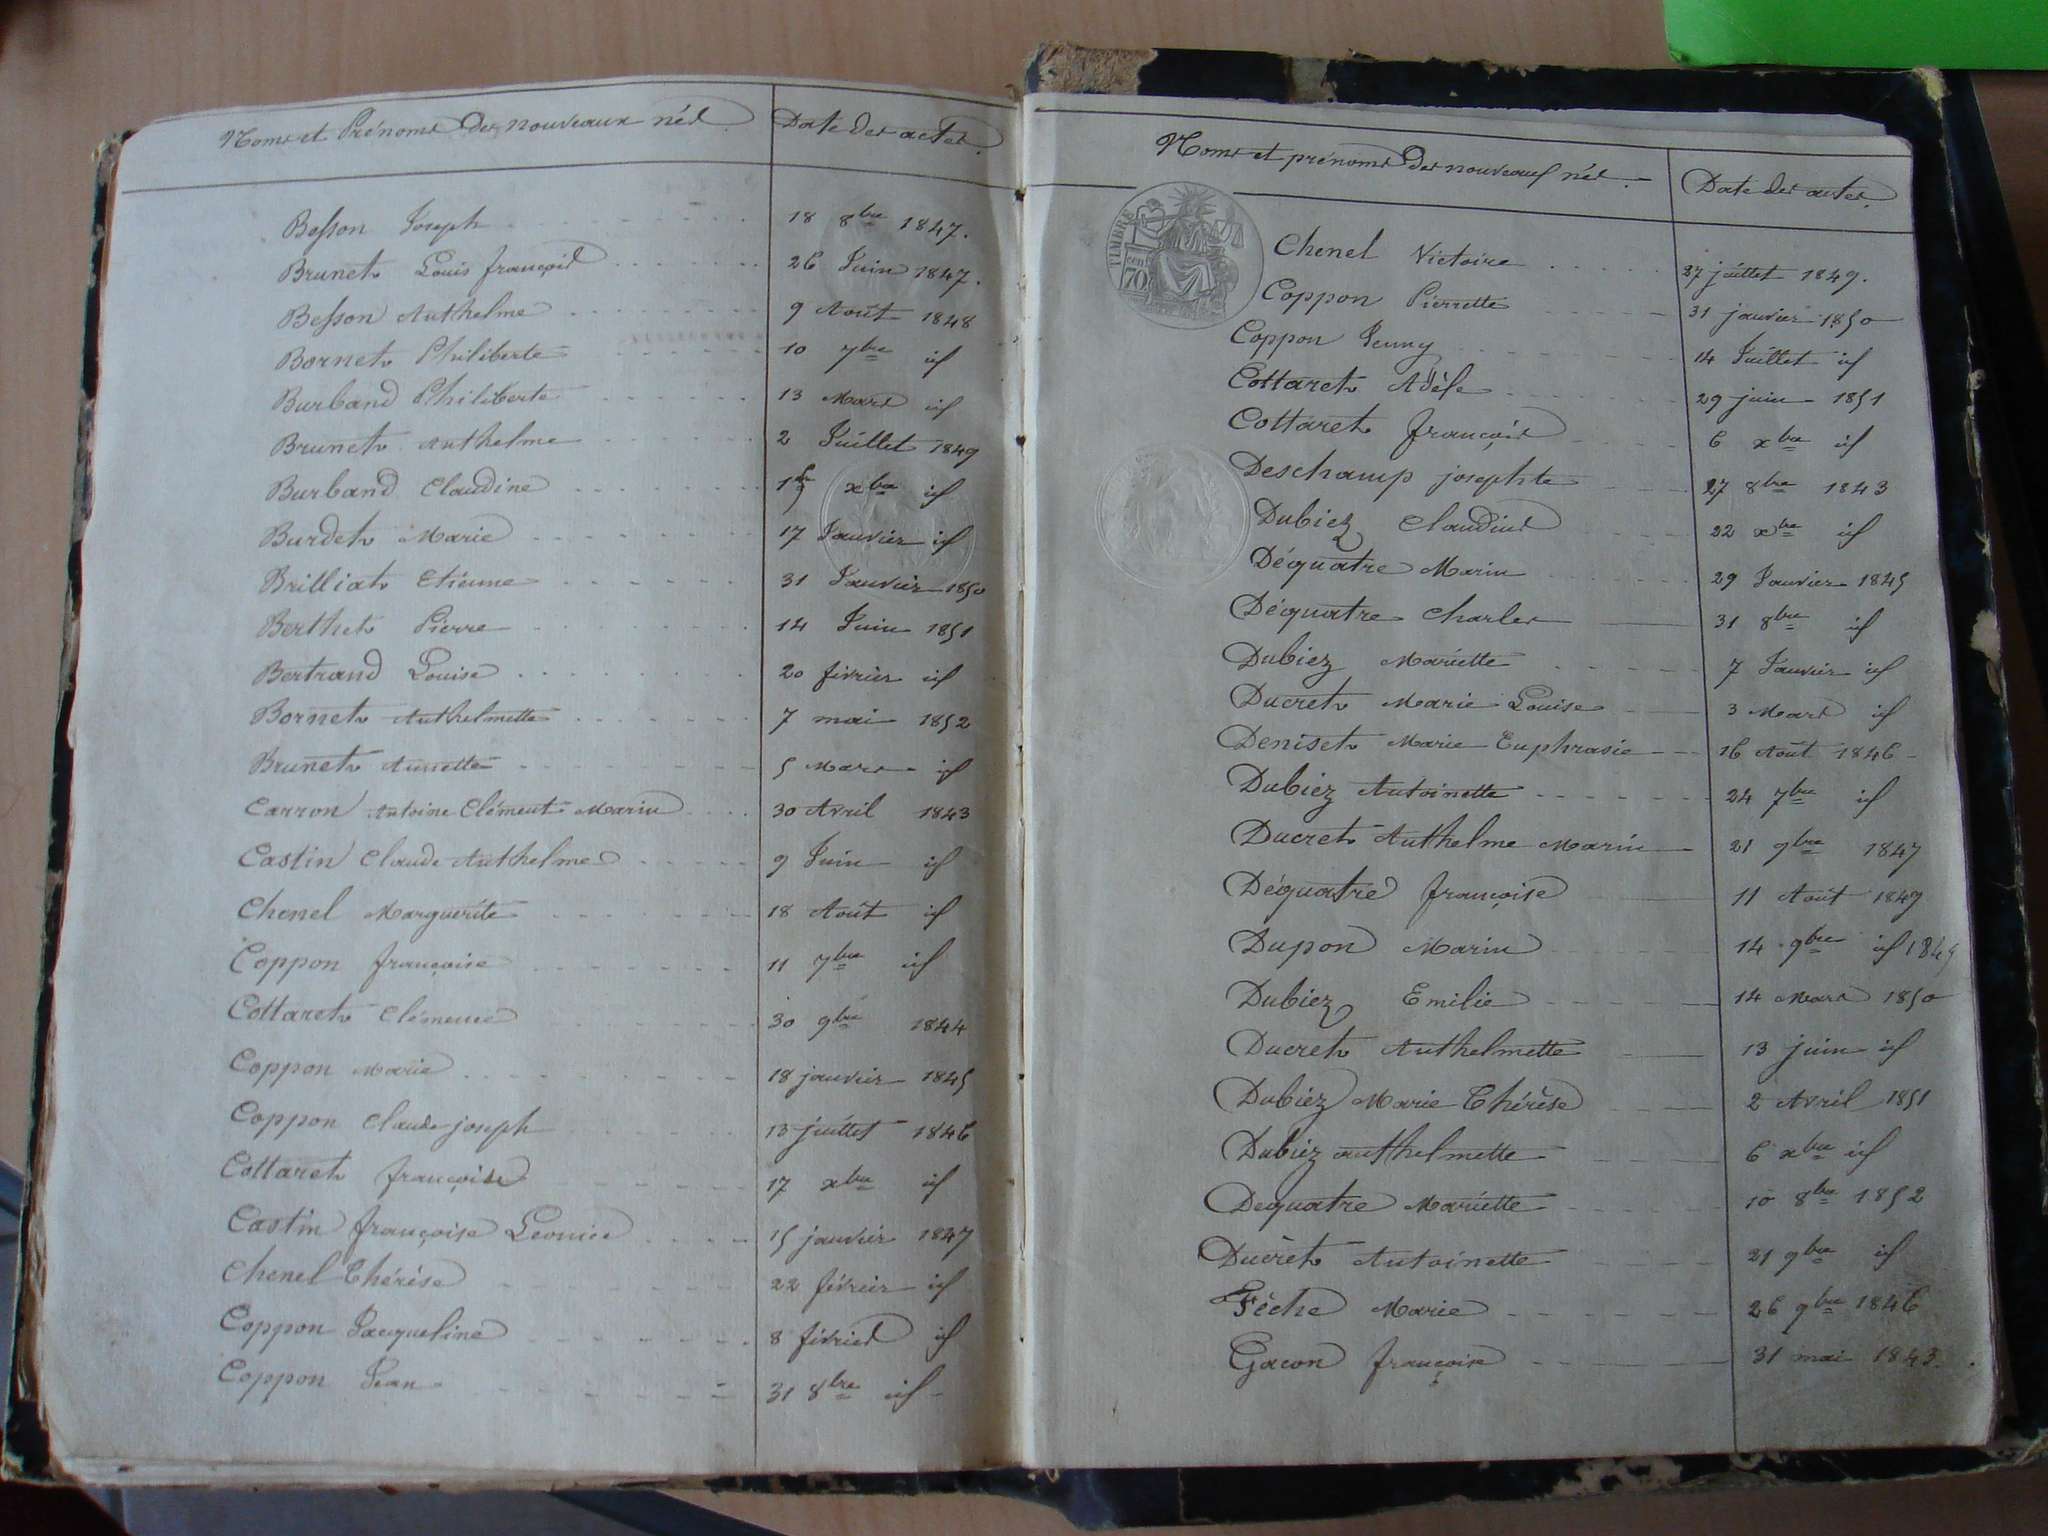 Noms et Prénoms des nouveaux nés. Date des actes.
Besson Joseph 18 8bre 1847.
Brunet Louis françois 26 Juin 1847.
Besson Anthelme 9 Août 1848
Bornet Philiberte 10 7bre id
Burband Philiberte 13 Mars id
Brunet Anthelme 2 Juillet 1849
Burband Claudine 1er xbre id
Burdet Marie 17 Janvier id
Brilliat Etienne 31 Janvier 1850
Berthet Pierre 14 Juin 1851
Bertrand Louise 20 février id
Bornet Anthelmette 7 mai 1852
Brunet Annette 5 Mars id
Carron Antoine Clément Marin 30 Avril 1843
Castin Claude Anthelme 9 Juin id
Chenel Marguerite 18 Août id
Coppon françoise 11 7bre id
Cottaret Clémence 30 9bre 1844
Coppon Marie 18 janvier 1845
Coppon Claude joseph 13 juillet 1846
Cottaret françoise 17 xbre id
Castin françoise Leonice 15 janvier 1847
Chenel Thérèse 22 février id
Coppon Jacqueline 8 février id
Coppon Jean 31 8bre id
Noms et prénoms des nouveaux nés. Date des actes.
TIMBRE
70 cent
Chenel Victoire 27 juillet 1849.
Coppon Pierrette 31 janvier 1850
Coppon Jenny 14 Juillet id
Cottaret Adèle 29 juin 1851
Cottaret françois 6 xbre id
Deschamp josephte 27 8bre 1843
Dubiez Claudius 22 xbre id
Déquatre Marin 29 Janvier 1845
Déquatre Charles 31 8bre id
Dubiez Mariette 7 Janvier id
Ducret Marie Louise 3 Mars id
Deniset Marie Euphrasie 16 Août 1846
Dubiez Antoinette 24 7bre id
Ducret Anthelme Marin 21 9bre 1847
Déquatre françoise 11 Août 1849
Dupon Marin 14 9bre id 1849
Dubiez Emilie 14 Mars 1850
Ducret Anthelmette 13 juin id
Dubiez Marie Thérèse 2 Avril 1851
Dubiez anthelmette 6 xbre id
Dequatre Mariette 10 8bre 1852
Ducret Antoinette 21 9bre id
Féche Marie 26 9bre 1846
Gacon françoise 31 mai 1843.